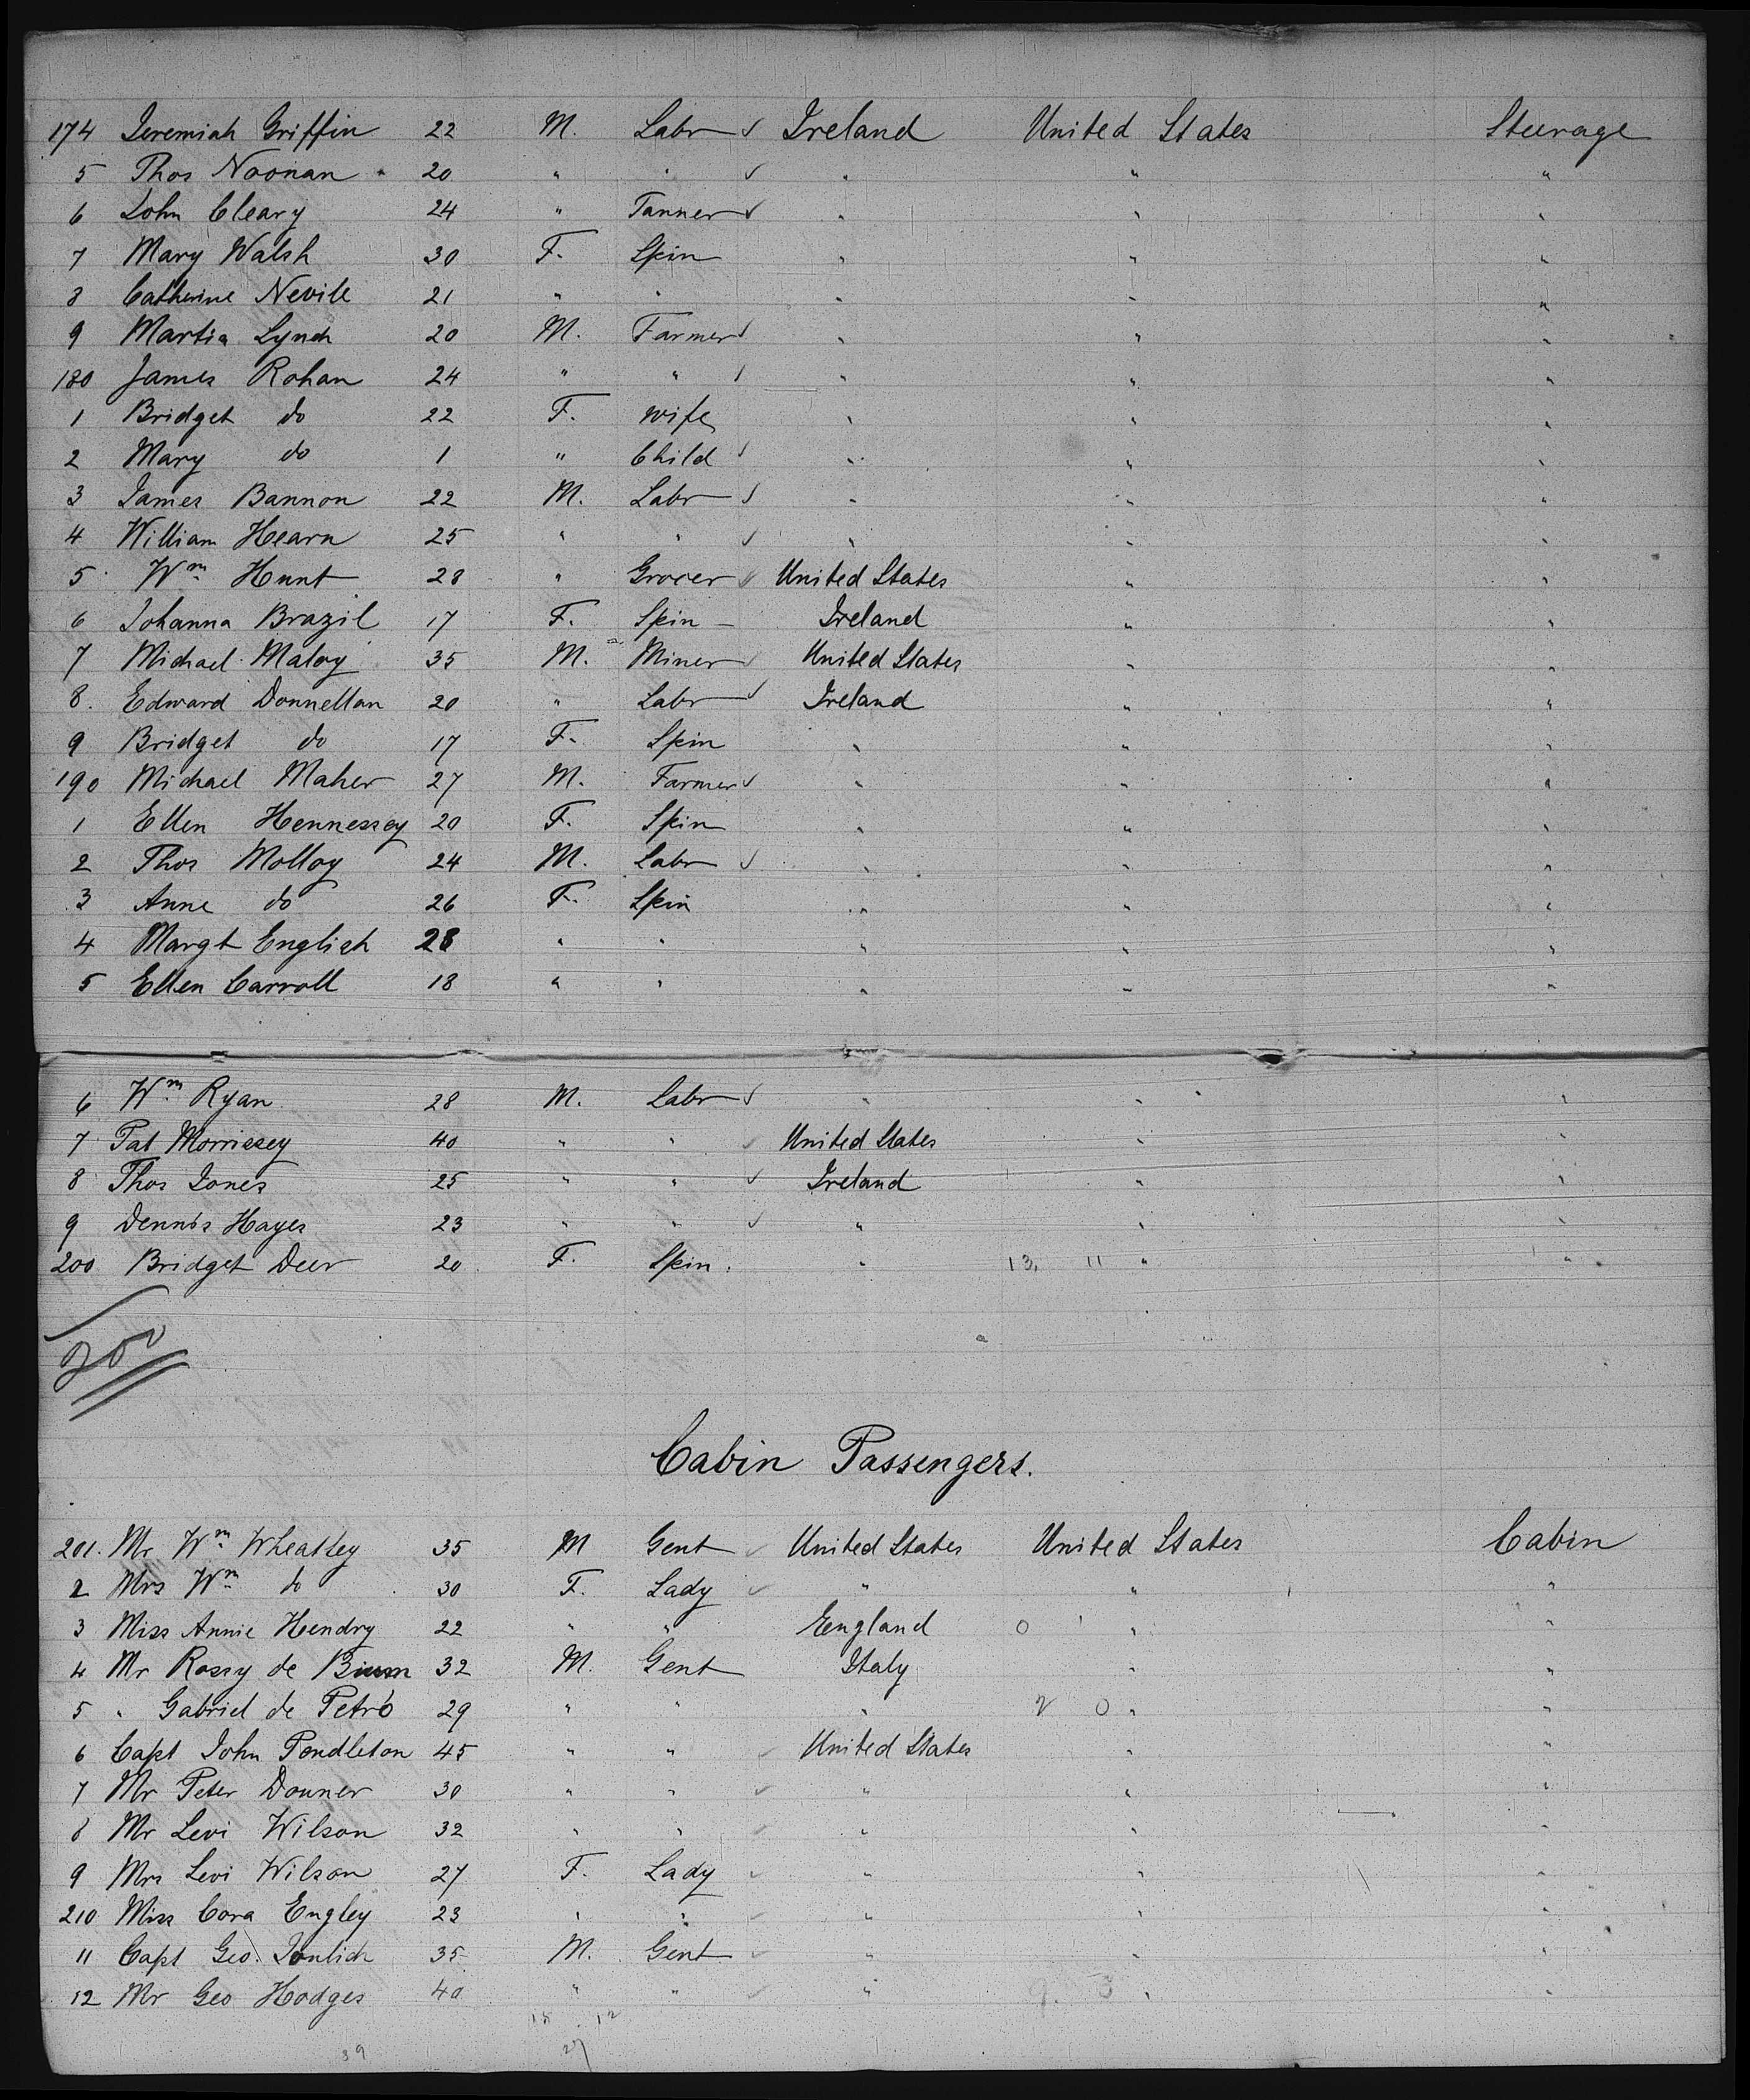 174 Jeremiah Griffin 22 M. Labr ✓ Ireland United States Steerage
5 Thos Noonan 20 " " ✓ " " "
6 John Cleary 24 " Tanner ✓ " " "
7 Mary Walsh 30 F. Spin " " "
8 Catherine Nevile 21 " " " " "
9 Martin Lynch 20 M. Farmer ✓ " " "
180 James Rohan 24 " " ✓ " " "
1 Bridget do 22 F. wife " " "
2 Mary do 1 " Child ✓ " " "
3 James Bannon 22 M. Labr ✓ " " "
4 William Hearn 25 " " ✓ " " "
5 Wm Hunt 28 " Grocer ✓ United States " "
6 Johanna Brazil 17 F. Spin – Ireland " "
7 Michael Maloy 35 M. Miner ✓ United States " "
8. Edward Donnellan 20 " Labr ✓ Ireland " "
9 Bridget do 17 F. Spin " " "
190 Michael Maher 27 M. Farmer ✓ " " "
1 Ellen Hennessey 20 F. Spin " " "
2 Thos Molloy 24 M. Labr ✓ " " "
3 Anne do 26 F. Spin " " "
4 Margt English 28 " " " " "
5 Ellen Carroll 18 " " " " "
6 Wm Ryan 28 M. Labr ✓ " " "
7 Pat Morrissey 40 " " ✓ United States " "
8 Thos Jones 25 " " ✓ Ireland " "
9 Dennis Hayes 23 " " ✓ " " "
200 Bridget Deer 20 F. Spin. " 13. 11 " "
Cabin Passengers.
201. Mr Wm Wheatley 35 M Gent ✓ United States United States Cabin
2 Mrs Wm do 30 F. Lady ✓ " " "
3 Miss Annie Hendry 22 " " England 0 " "
4 Mr Rossy de 32 M. Gent Italy " "
5 " Gabriel de Petro 29 " " " 2 0 " "
6 Capt John Pendleton 45 " " ✓ United States " "
7 Mr Peter Donner 30 " " ✓ " " "
8 Mr Levi Wilson 32 " " ✓ " " "
9 Mrs Levi Wilson 27 F. Lady ✓ " " "
210 Miss Cora Engley 23 " " ✓ " " "
11 Capt Geo. 35 M. Gent ✓ " " "
12 Mr Geo Hodges 40 " " ✓ " 9. 3 " "
15 . 12
39 27